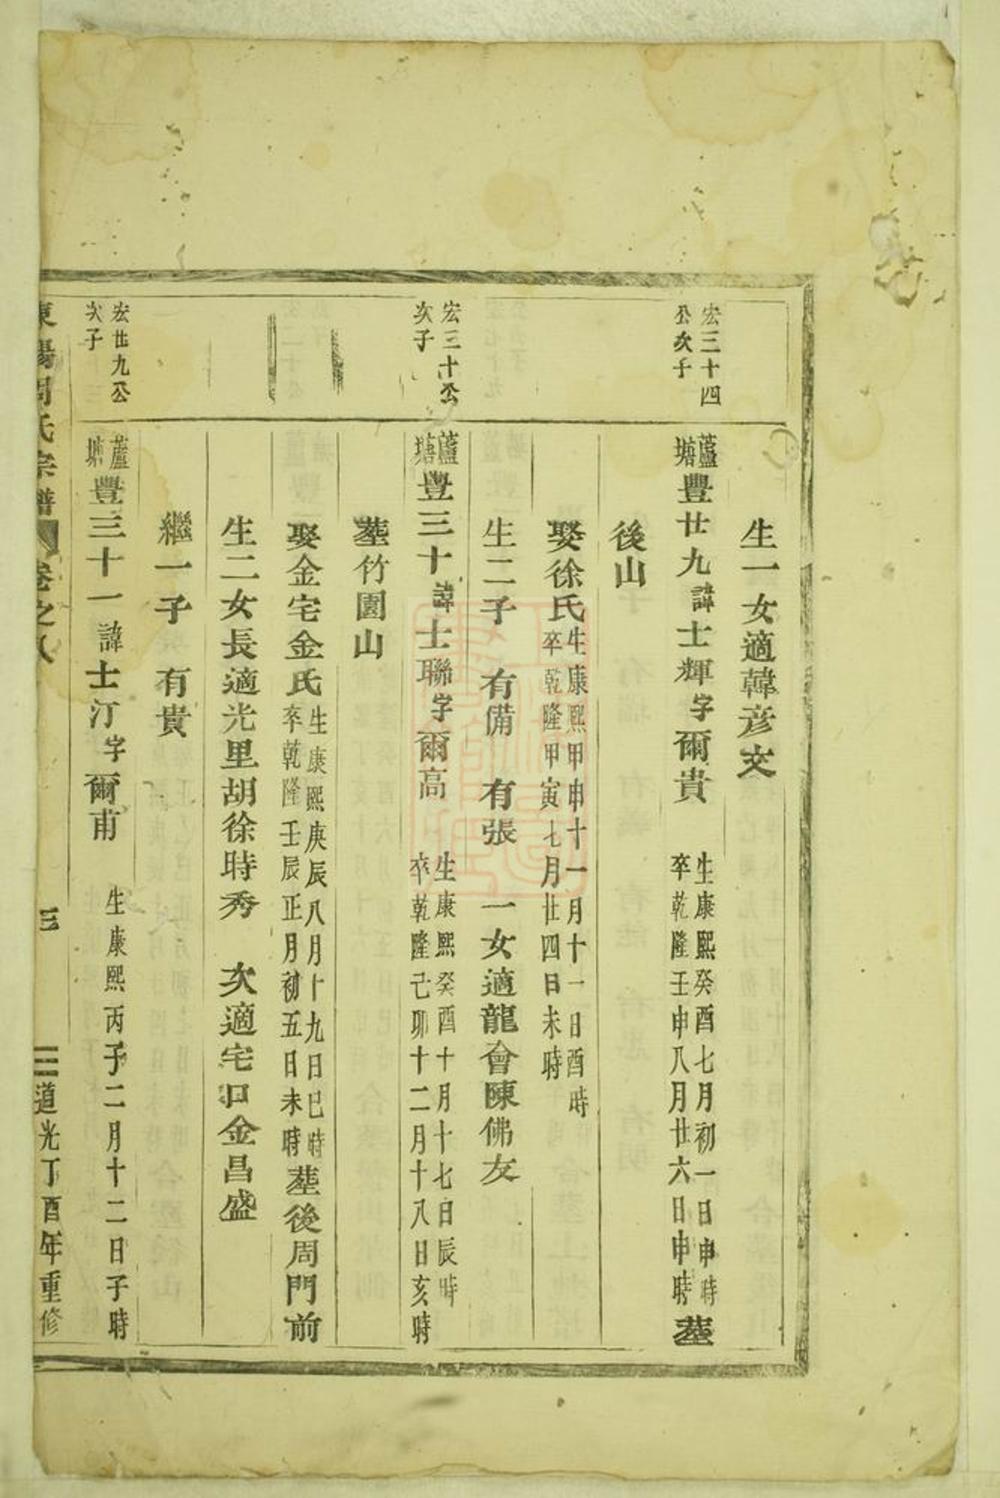 生一女適韓彦文
宏三十四
公次子
蘆塘豐廿九諱士輝字爾貴 生康熙癸酉七月初一日申時
卒乾隆壬申八月廿六日申時 塟
後山
娶徐氏生康熙甲申十一月十一日酉時
卒乾隆甲寅七月廿四日未時
生二子 有備 有張 一女適龍會陳佛友
宏三十公
次子
蘆塘豐三十諱士聯字爾高 生康熙癸酉十月十七日辰時
卒乾隆己卯十二月十八日亥時
塟竹園山
娶金宅金氏生康熙庚辰八月十九日巳時
卒乾隆壬辰正月初五日未時塟後周門前
生二女長適光里胡徐時秀 次適宅口金昌盛
繼一子 有貴
宏廿九公
次子
蘆塘豐三十一諱士汀字爾甫 生康熙丙子二月十二日子時
東陽周氏宗譜 卷之八 三 道光丁酉年重修